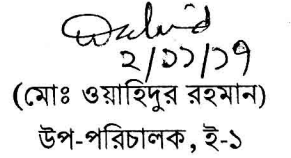 ২/১১/১৭
(মোঃ ওয়াহিদুর রহমান)
উপ-পরিচালক, ই-১